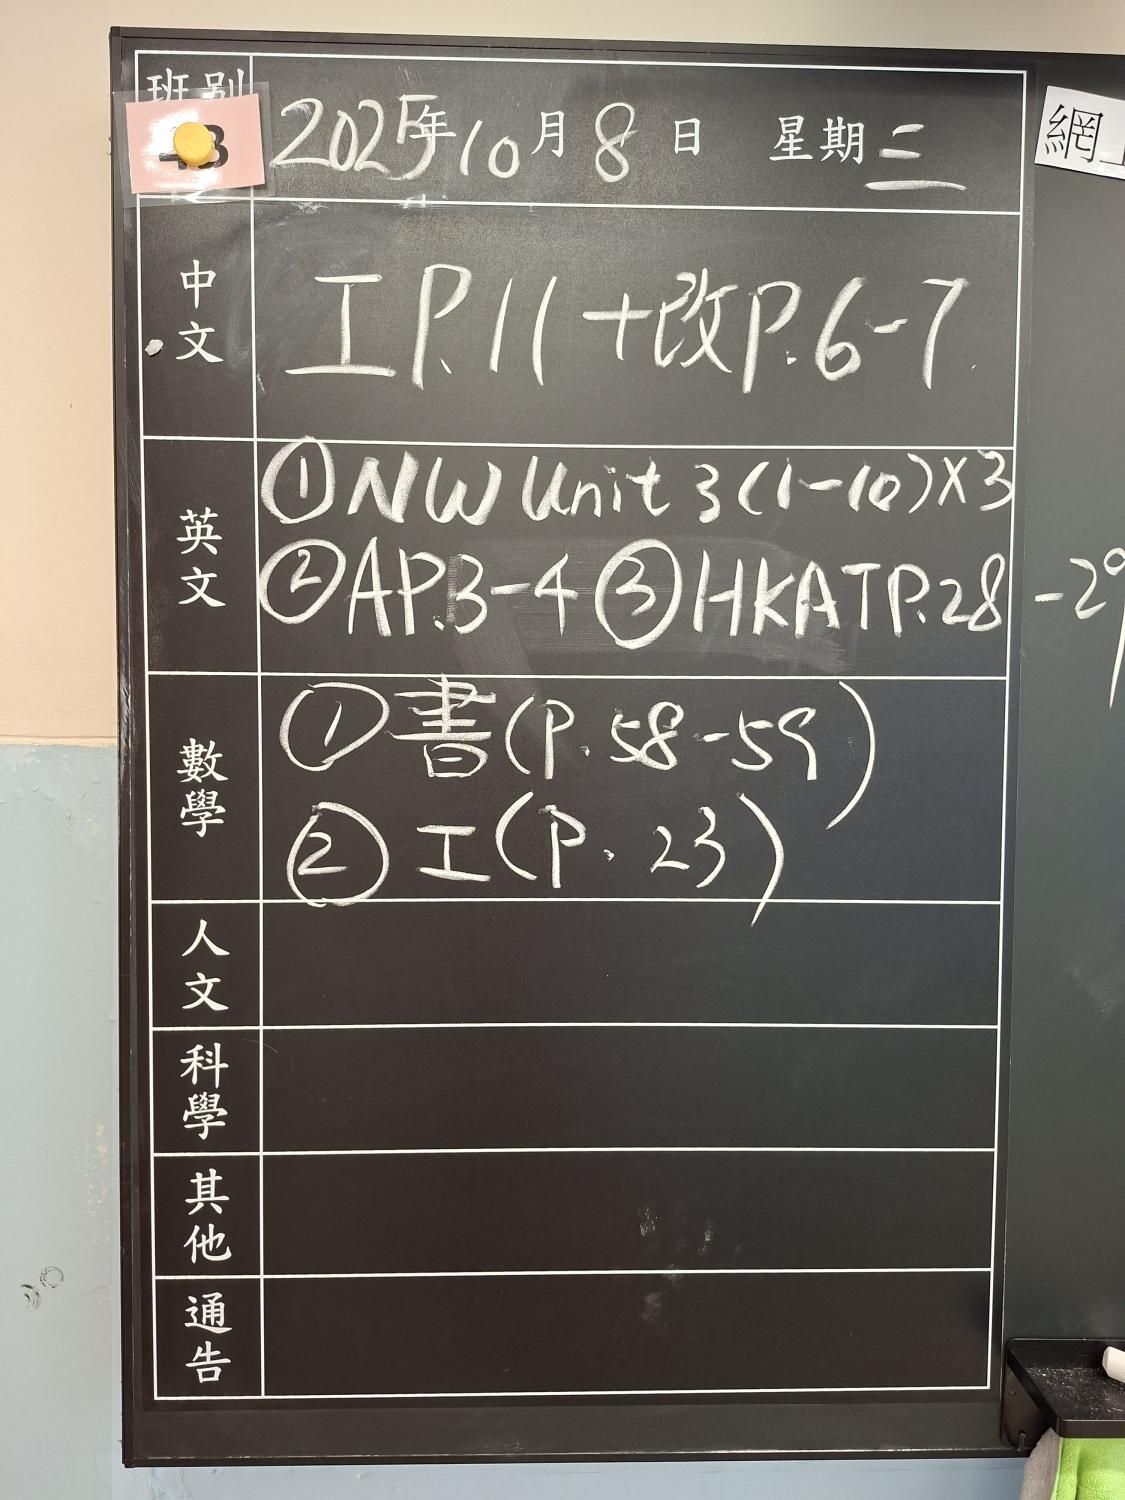 班別 2025年10月8日 星期三
網
中文 工P.11+改P.6-7
英文 ①NW Unit 3(1-10)X3
②AP.3-4 ③HKATP.28-29
數學 ①書(P.58-59)
②工(P.23)
人文
科學
其他
通告